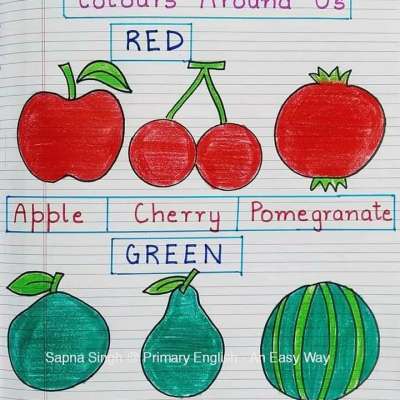 Colours Around Us
RED
Apple Cherry Pomegranate
GREEN
Sapna Singh @ Primary English - An Easy Way